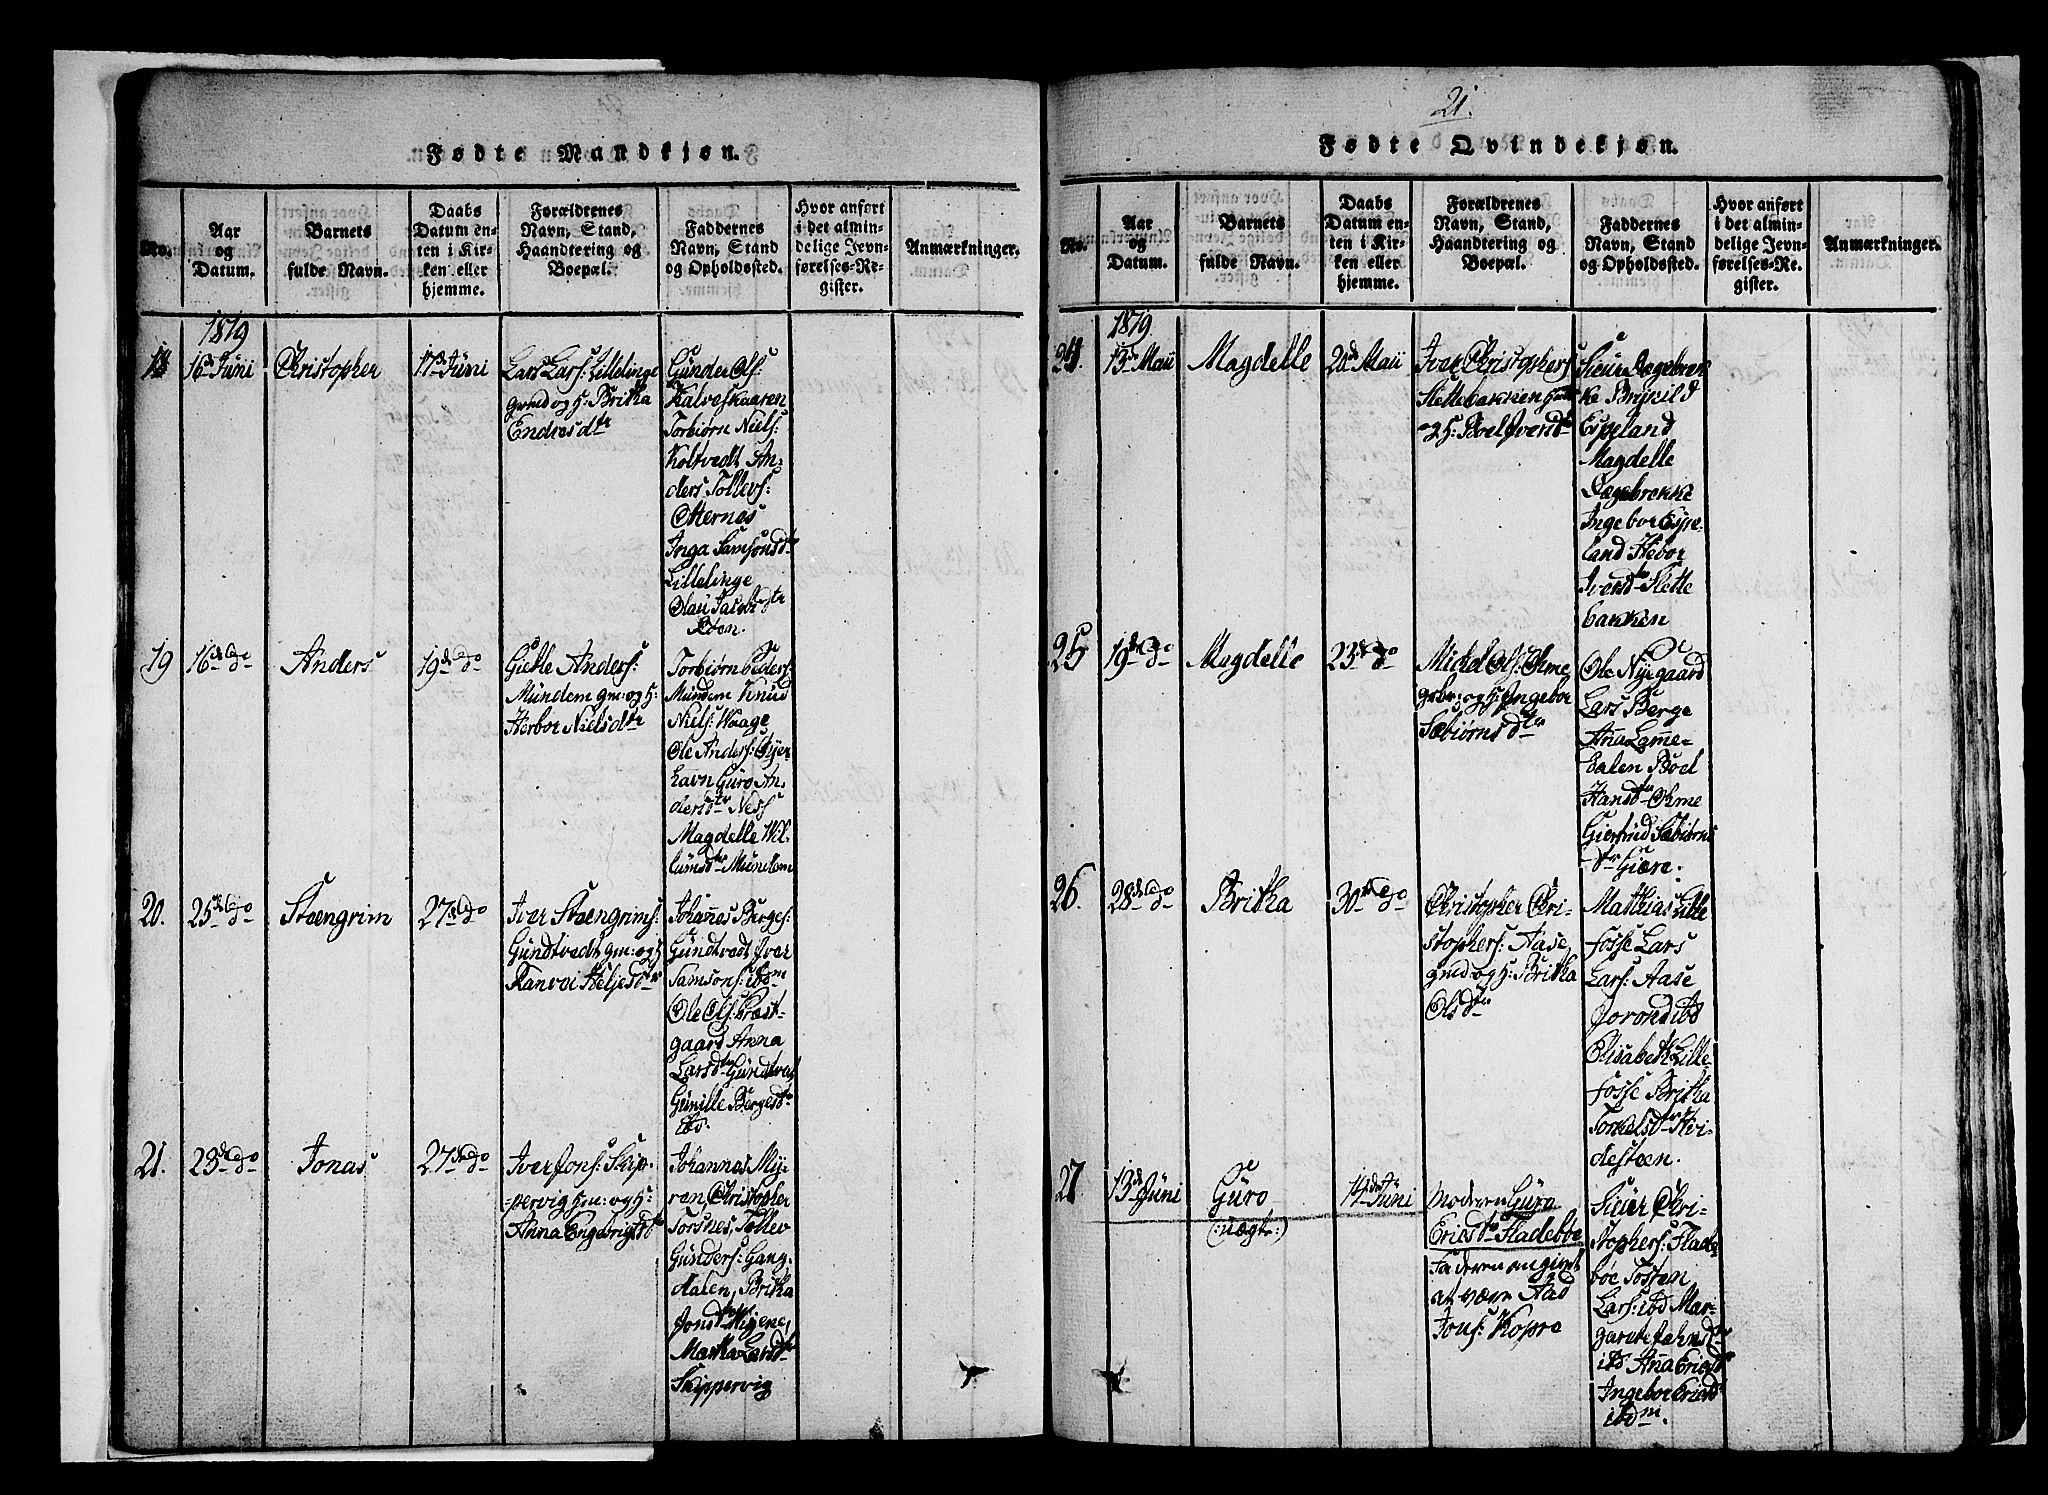 Fødte Mandkjøn.
No.
Aar
og
Datum.
Barnets
fulde Navn.
Daabs
Datum en-
ten i Kir-
ken eller
hjemme.
Forældrenes
Navn, Stand,
Haandtering og
Boepæl.
Faddernes
Navn, Stand
og Opholdssted.
Hvor anført
i det almin-
delige Jevn-
førelses-Re-
gister.
Anmærkninger.
1819
16de Juni
Christopher
17de Juni
Lars Lars: Lillelinge
gmd og H: Britha
Endresdtr
Gunder Ols:
Kalveskaaren
Torbiørn Niels:
Koltvedt An-
ders Tollevs:
Otternes
Inga Samsonsdtr
Lillelinge
19
16de do
Anders
19de do
Gietle Anders:
Mundem gm: og H:
Herbor Nielsdtr
Torbiørn Peders:
Mundem Knud
Niels: Waage
Ole Anders: Øjer-
havn Guro An-
dersdtr Ness
Magdelle Wil-
lumsdtr Mundem
20.
25de do
Steengrim
27de do
Iver Steengrims:
Gundtvedt gm: og H
Ranvei Heljesdtr
Johannes Børges:
Gundtvedt Iver
Samsons: ibdm
Ole Ols: Præst-
gaard Anna
Larsdtr Gundtved
Gunille Bergesdtr
ibd.
21.
23de do
Jonas
27de do
Iver Jons: Skip-
pervig hm: og H:
Anna Engebrigtsdtr
Johannes My-
ren, Christopher
Torsnes, Tollev
Gunders: Gang-
dalen, Britha
Jonsdtr
Martha Larsdtr
Skippervig
21.
Fødte Qvindekjøn.
No.
Aar
og
Datum.
Barnets
fulde Navn.
Daabs
Datum en-
ten i Kir-
ken eller
hjemme.
Forældrenes
Navn, Stand,
Haandtering og
Boepæl.
Faddernes
Navn, Stand
og Opholdssted.
Hvor anført
i det almin-
delige Jevn-
førelses-Re-
gister.
Anmærkninger.
1819.
24.
13de Maii
Magdelle
20de Maii
Iver Christophers
Slettebakken
H: Iversdtr
Siur Dagebrek
ke Brynild
Espeland
Magdelle
Dagebrekke
Ingebor Espe-
land Hebor
Iversdtr Slette
bakken
25
19de do
Magdelle
23de do
Michel Ols: Øhme
og H: Ingebor
Sæbiørnsdtr
Ole Nygaard
Lars Berge
Anna Lame-
Hansdtr Øhme
Giertrud Sæbiørns
dtr Giære.
26.
28de do
Britha
30de do
Christopher Chri-
stophers: Aase,
gmd og H: Britha
Olsdtr
Matthias Lille
fosse Lars
Lars: Aase
Jorond ibd
Elisabeth Lille-
fosse Britha
Torkelsdtr Hvi-
desteen.
27
13de Juni
Guro
(:uægte:)
14de Juni
Moderen Guro
Ericsdtr Fladebøe
Faderen angivet
at være Aad
Jons: Kopre
Siur Chri-
stophers: Flade
bøe Tosten
Lars: ibd Mar-
garethe Jahnsdtr
ibd Anna Ericsdtr
Ingebor Ericsdtr
ibdm.